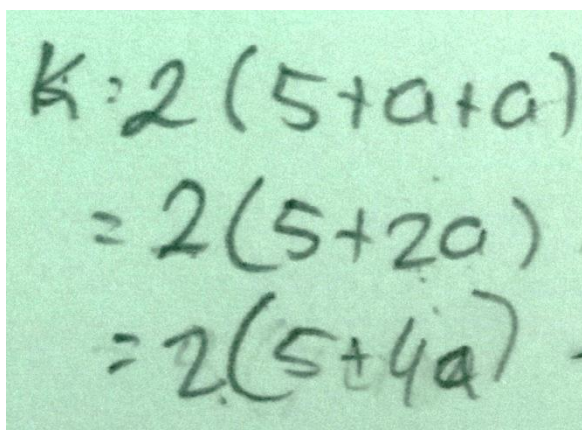 K = 2 (5+a+a)
= 2 (5+2a)
= 2 (5+4a)